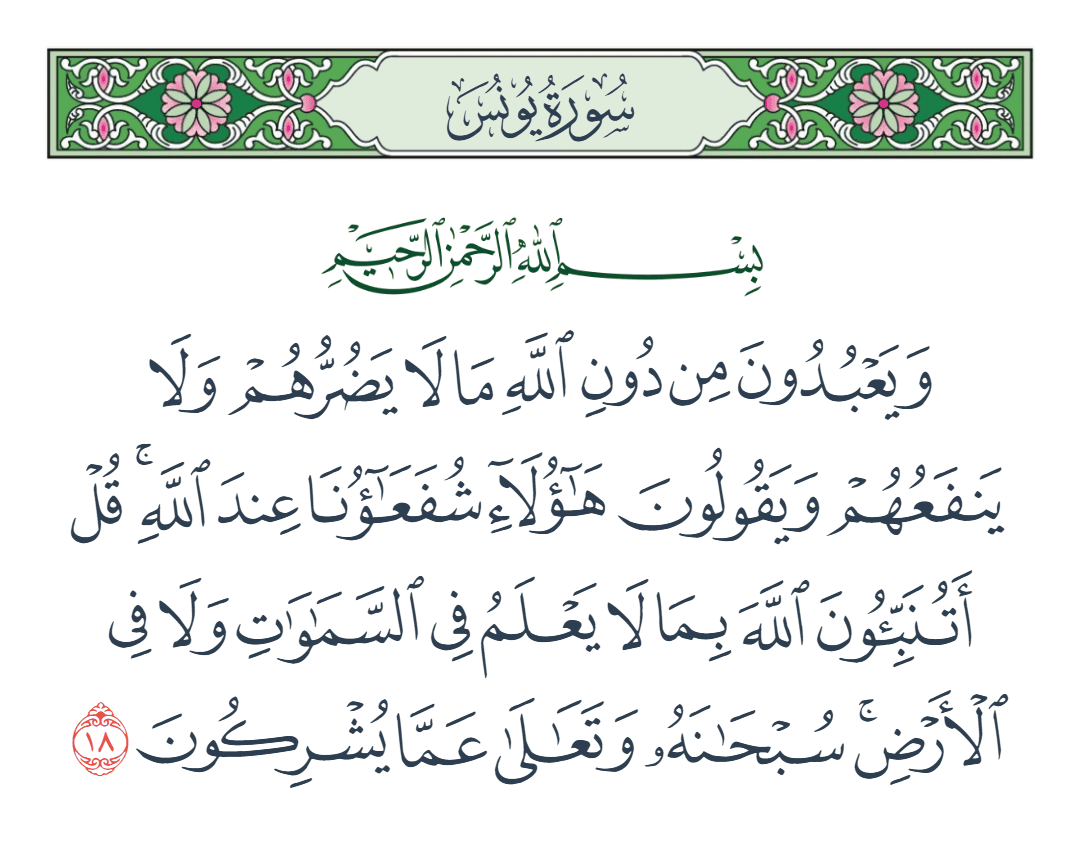 سُورَةُ يُونُسَ
بِسْمِ ٱللَّهِ ٱلرَّحْمَٰنِ ٱلرَّحِيمِ
وَيَعْبُدُونَ مِن دُونِ ٱللَّهِ مَا لَا يَضُرُّهُمْ وَلَا
يَنفَعُهُمْ وَيَقُولُونَ هَٰٓؤُلَآءِ شُفَعَٰٓؤُنَا عِندَ ٱللَّهِ ۚ قُلْ
أَتُنَبِّـُٔونَ ٱللَّهَ بِمَا لَا يَعْلَمُ فِى ٱلسَّمَٰوَٰتِ وَلَا فِى
ٱلْأَرْضِ ۚ سُبْحَٰنَهُۥ وَتَعَٰلَىٰ عَمَّا يُشْرِكُونَ ١٨